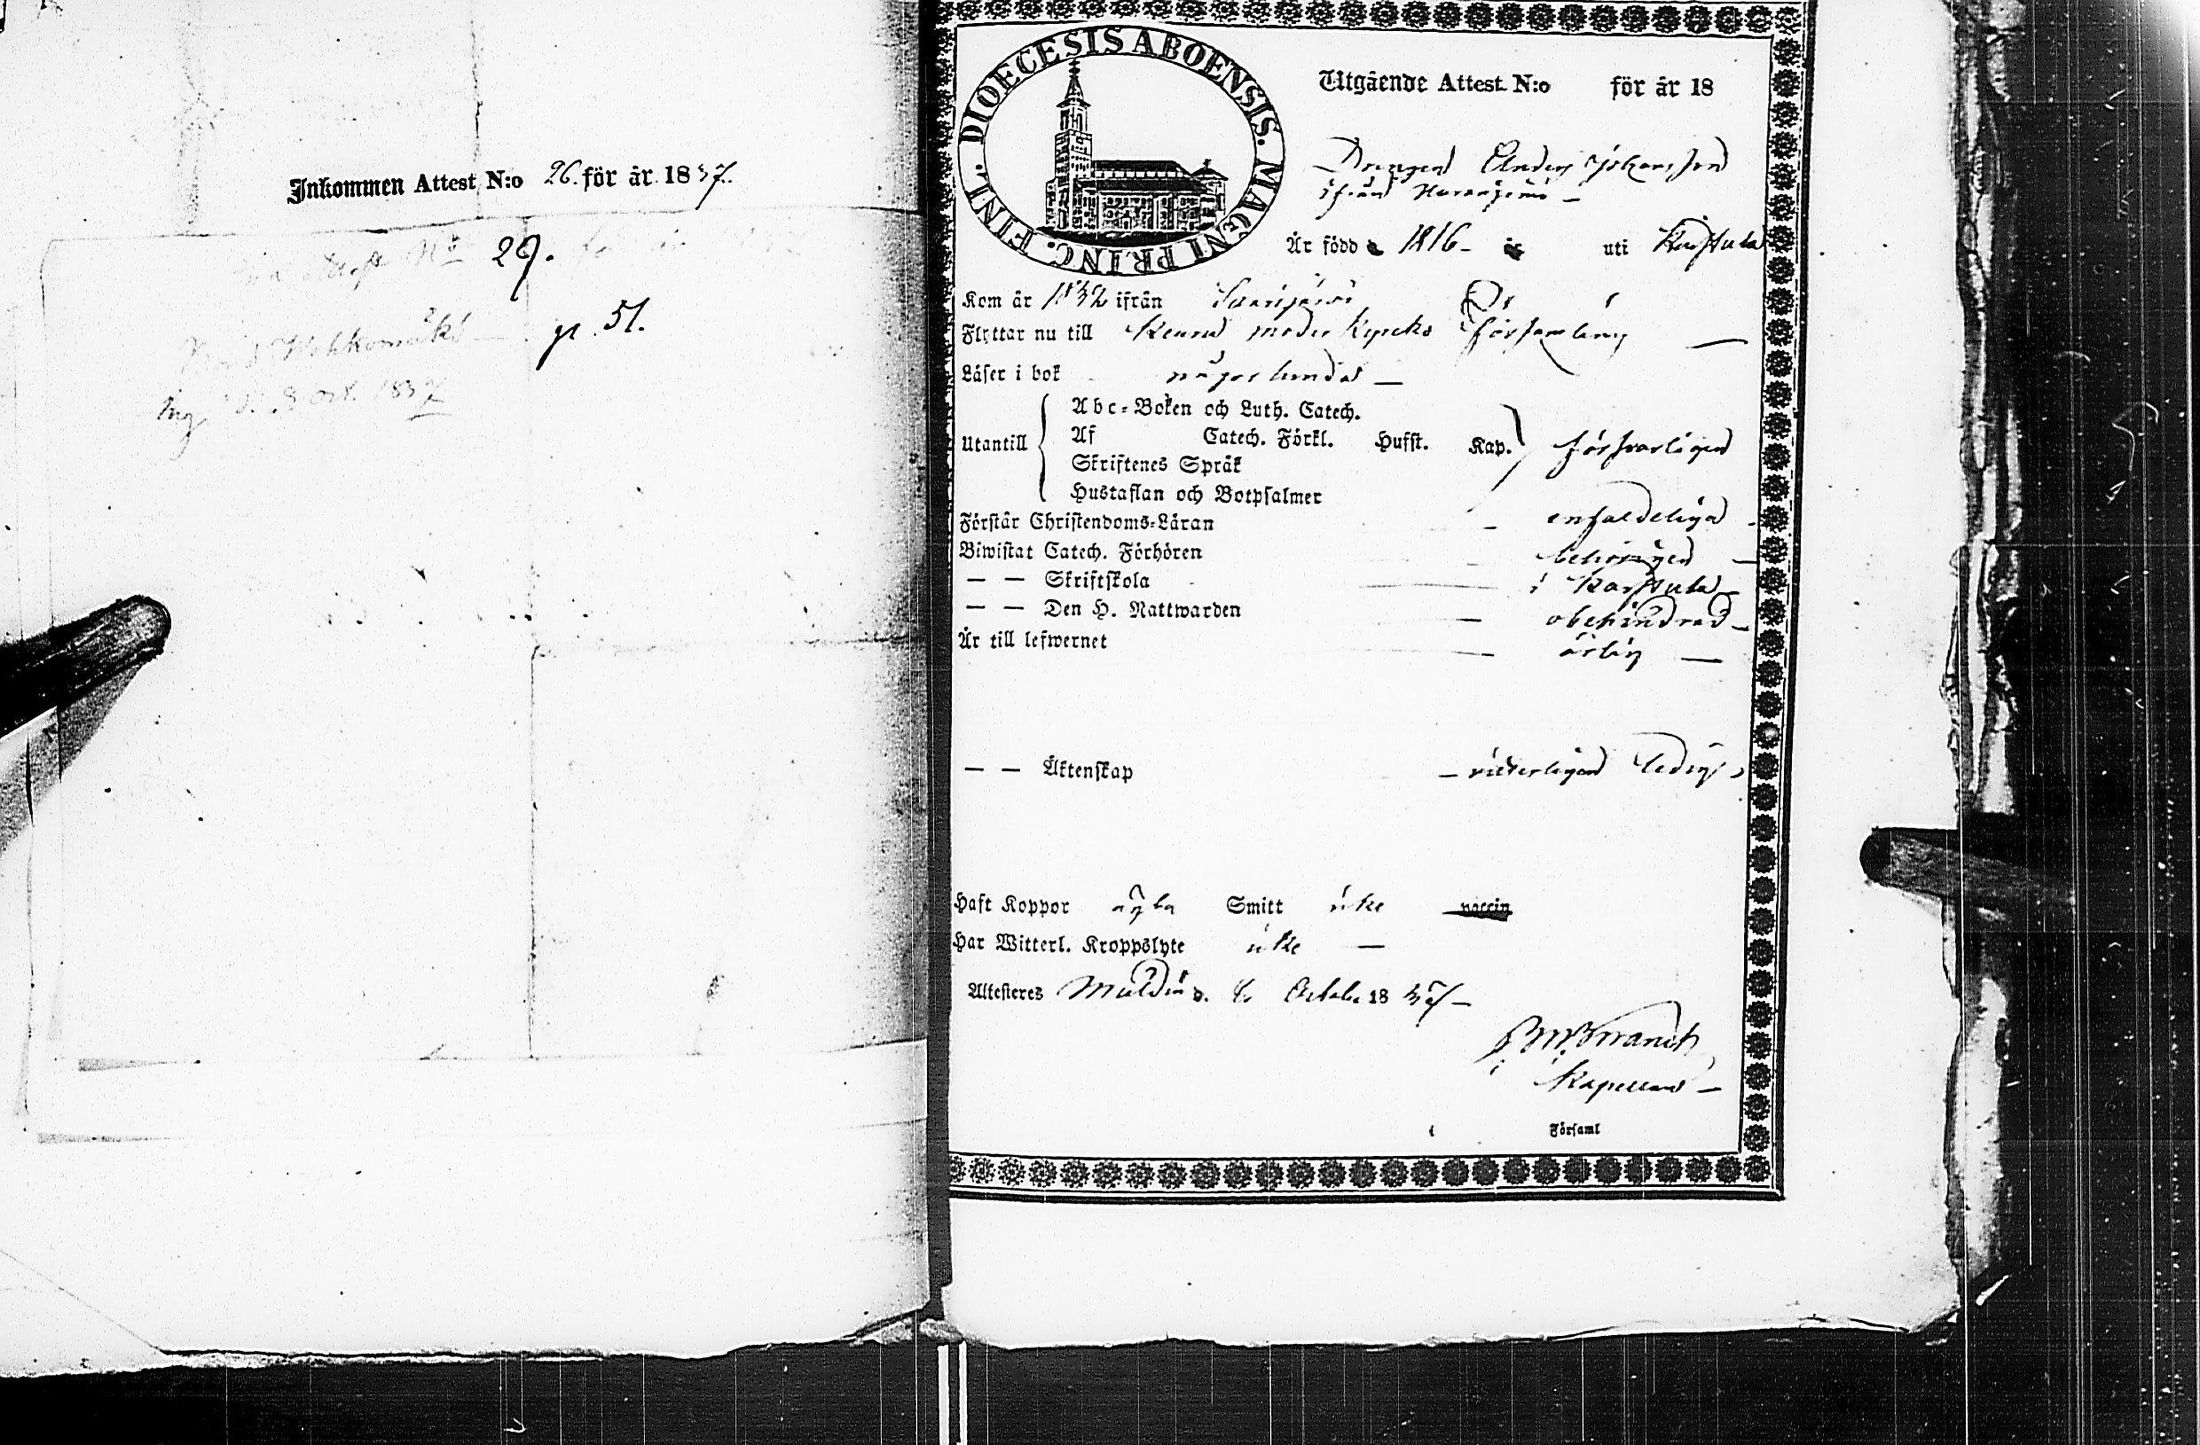 Inkommen Attest N:o 26. för år 1837.
29.
p. 51.
d. 8 Oct. 1837
DIOECESIS ABOENSIS. MAGNI PRINC. FINL.
Utgående Attest N:o för år 18
Drengen Anders Johansson
ifrån
Är född 1816 - uti Karstula
Kom år 1832 ifrån Saarijärvi
Flyttar nu till Keuru moder kyrko församling —
Läser i bok någorlunda —
Utantill
Abc-Boken och Luth. Catech.
Af Catech. Förkl. Husst. Kap. försvarligen
Skriftenes Språk
Hustaflan och Botpsalmer
Förstår Christendoms-Läran — enfaldeligen —
Biwistat Catech. Förhören behörigen —
— — Skriftskola — i Karstula —
— — Den H. Nattwarden — obehindrad —
Är till lefwernet — ärlig —
— — Äktenskap — witterligen ledig,
Haft Koppor ägta Smitt icke vaccin
Har Witterl. Kroppslyte icke —
Attesteres Multia d. October 1837 —
Kapellan —
i Församl